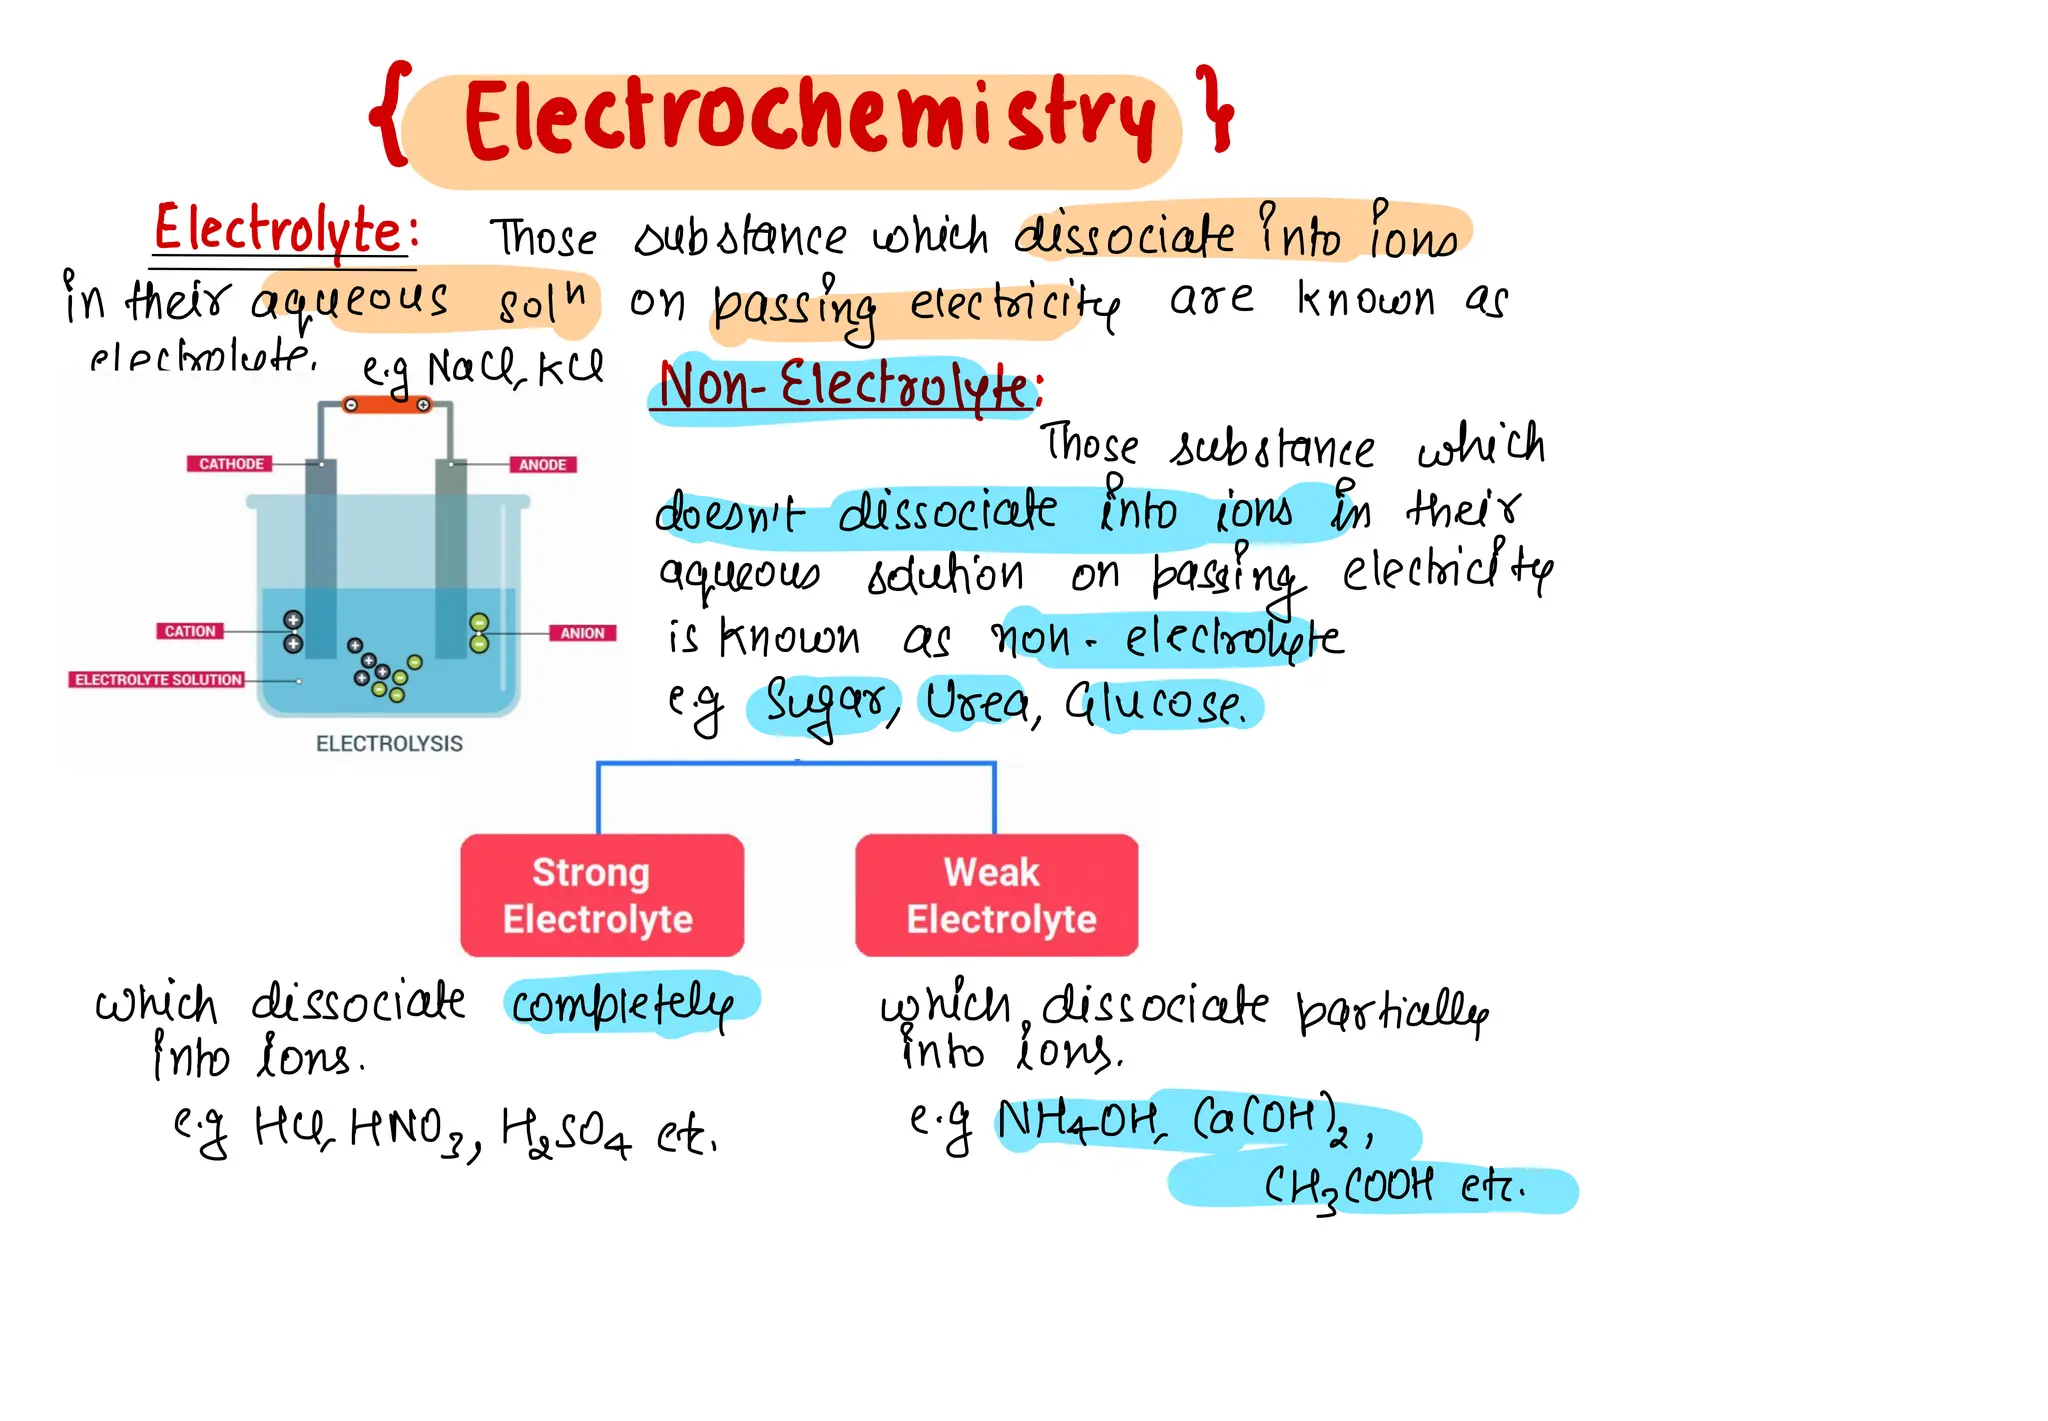 { Electrochemistry }
Electrolyte: Those substance which dissociate into ions
in their aqueous solⁿ on passing electricity are known as
electrolyte. e.g NaCl, KCl
Non-Electrolyte:
Those substance which
doesn't dissociate into ions in their
aqueous solution on passing electricity
is known as non-electrolyte
e.g Sugar, Urea, Glucose.
CATHODE
ANODE
CATION
ANION
ELECTROLYTE SOLUTION
ELECTROLYSIS
Strong
Electrolyte
which dissociate completely
into ions.
e.g HCl, HNO₃, H₂SO₄ etc.
Weak
Electrolyte
which dissociate partially
into ions.
e.g NH₄OH, Ca(OH)₂,
CH₃COOH etc.